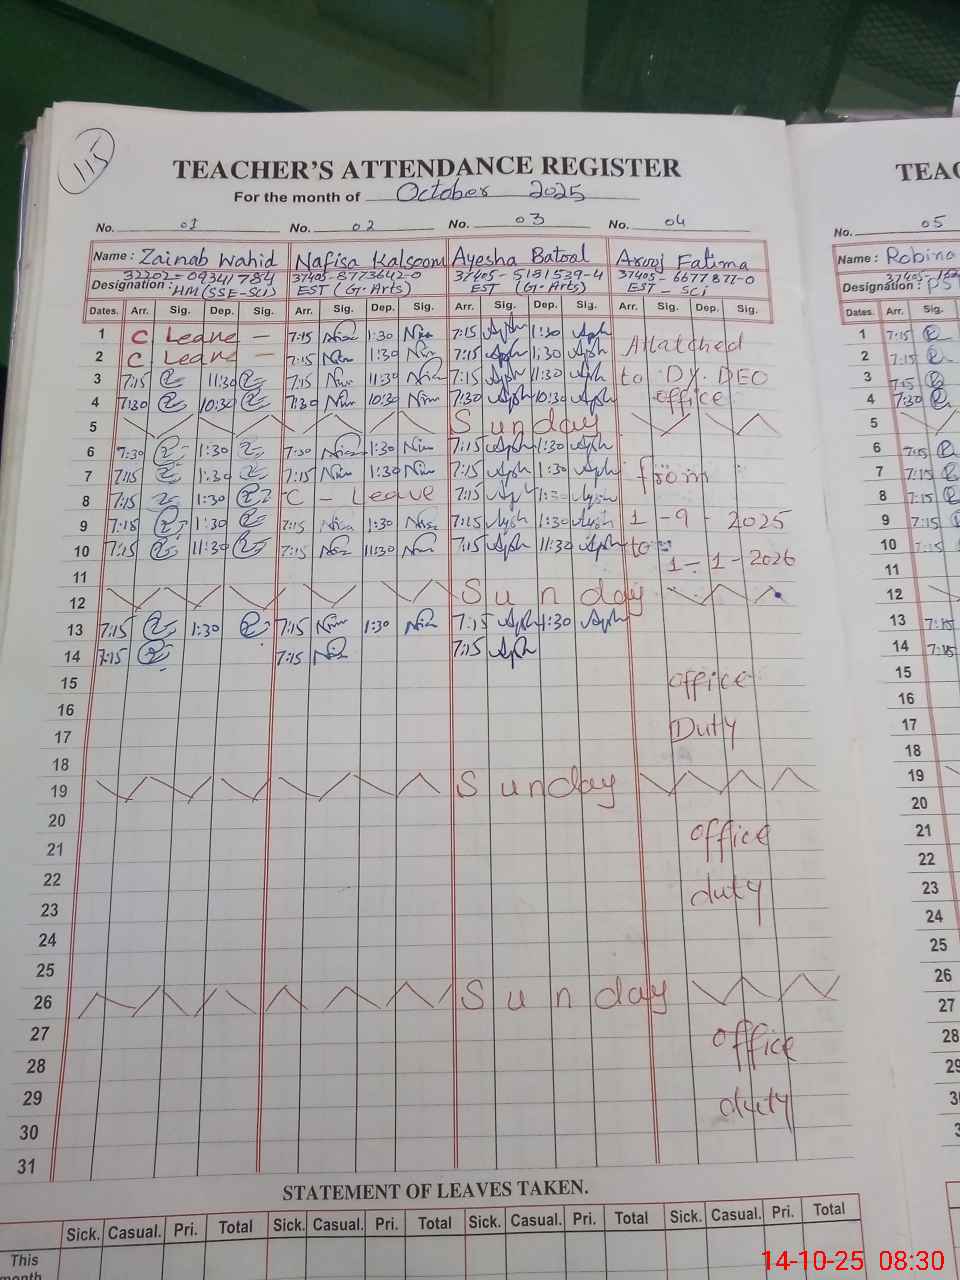 115
TEACHER'S ATTENDANCE REGISTER
For the month of October 2025
No. 01 No. 02 No. 03 No. 04
Name: Zainab Wahid Nafisa Kalsoom Ayesha Batool Arooj Fatima
32202-09341784 37405-8773642-0 37405-5181539-4 37405-6677871-0
Designation: HM (SSE-Sci) EST (G.Arts) EST (G.Arts) EST - Sci
Dates. Arr. Sig. Dep. Sig. Arr. Sig. Dep. Sig. Arr. Sig. Dep. Sig. Arr. Sig. Dep. Sig.
1 C Leave - 7:15 1:30 7:15 1:30 Attached
2 C Leave - 7:15 1:30 7:15 1:30
3 7:15 11:30 7:15 11:30 7:15 11:30 to DY. DEO
4 7:30 10:30 7:30 10:30 7:30 10:30 office
5 Sunday
6 7:30 1:30 7:30 1:30 7:15 1:30
7 7:15 1:30 7:15 1:30 7:15 1:30 from
8 7:15 1:30 C - Leave 7:15
9 7:15 1:30 7:15 1:30 7:15 1:30 1-9-2025
10 7:15 11:30 7:15 11:30 7:15 11:30 to
11 1-1-2026
12 Sunday
13 7:15 1:30 7:15 1:30 7:15 1:30
14 7:15 7:15 7:15
15 office
16
17 Duty
18
19 Sunday
20
21 office
22
23 duty
24
25
26 Sunday
27 office
28
29 duty
30
31
STATEMENT OF LEAVES TAKEN.
Sick. Casual. Pri. Total Sick. Casual. Pri. Total Sick. Casual. Pri. Total Sick. Casual. Pri. Total
This
month
TEAC
No. 05
Name: Robina
37405-
Designation:
Dates. Arr. Sig.
1 7:15
2 7:15
3 7:15
4 7:30
5
6 7:15
7 7:15
8 7:15
9 7:15
10 7:15
11
12
13 7:15
14 7:15
15
16
17
18
19
20
21
22
23
24
25
26
27
28
29
14-10-25 08:30